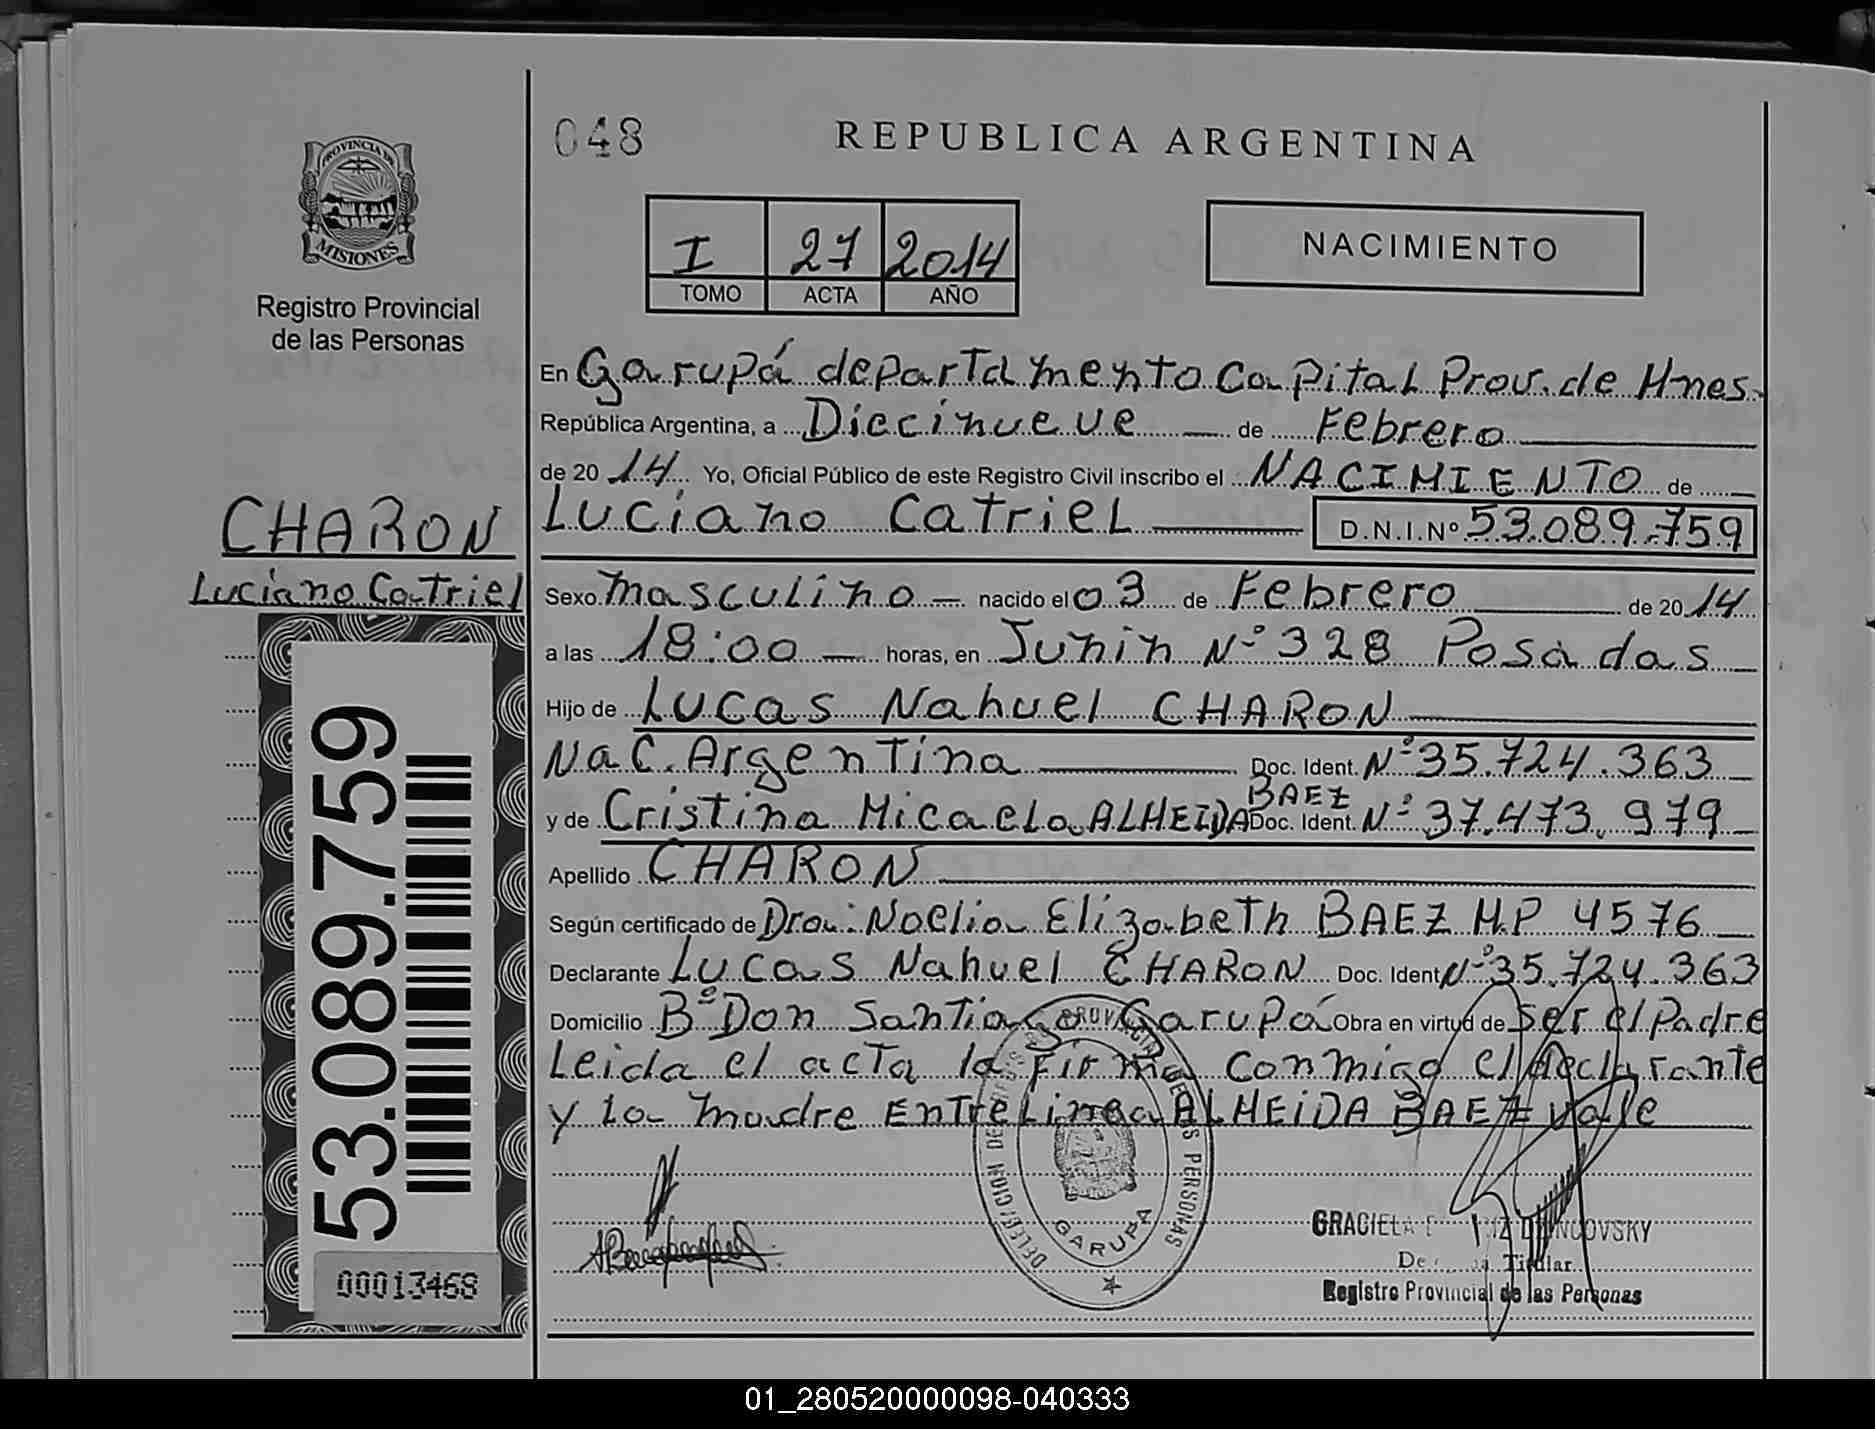 048
REPUBLICA ARGENTINA
PROVINCIA DE
MISIONES
Registro Provincial
de las Personas
I 27 2014
TOMO ACTA AÑO
NACIMIENTO
En Garupá departamento Capital Prov. de Mnes.
República Argentina, a Diecinueve de Febrero
de 2014 Yo, Oficial Público de este Registro Civil inscribo el NACIMIENTO de
Luciano Catriel D.N.I.Nº 53.089.759
CHARON
Luciano Catriel
Sexo masculino nacido el 03 de Febrero de 2014
a las 18:00 horas, en Junin Nº 328 Posadas
Hijo de Lucas Nahuel CHARON
Nac. Argentina Doc. Ident. Nº 35.724.363
BAEZ
y de Cristina Micaela ALMEIDA Doc. Ident. Nº 37.473.979
Apellido CHARON
Según certificado de Dra: Noelia Elizabeth BAEZ M.P 4576
Declarante Lucas Nahuel CHARON Doc. Ident Nº 35.724.363
Domicilio Bº Don Santiago Garupá Obra en virtud de ser el Padre
Leida el acta la firma conmigo el declarante
y la madre Entrelinea ALMEIDA BAEZ vale
53.089.759
00013468
GARUPA
GRACIELA
Titular
Registro Provincial de las Personas
01_280520000098-040333